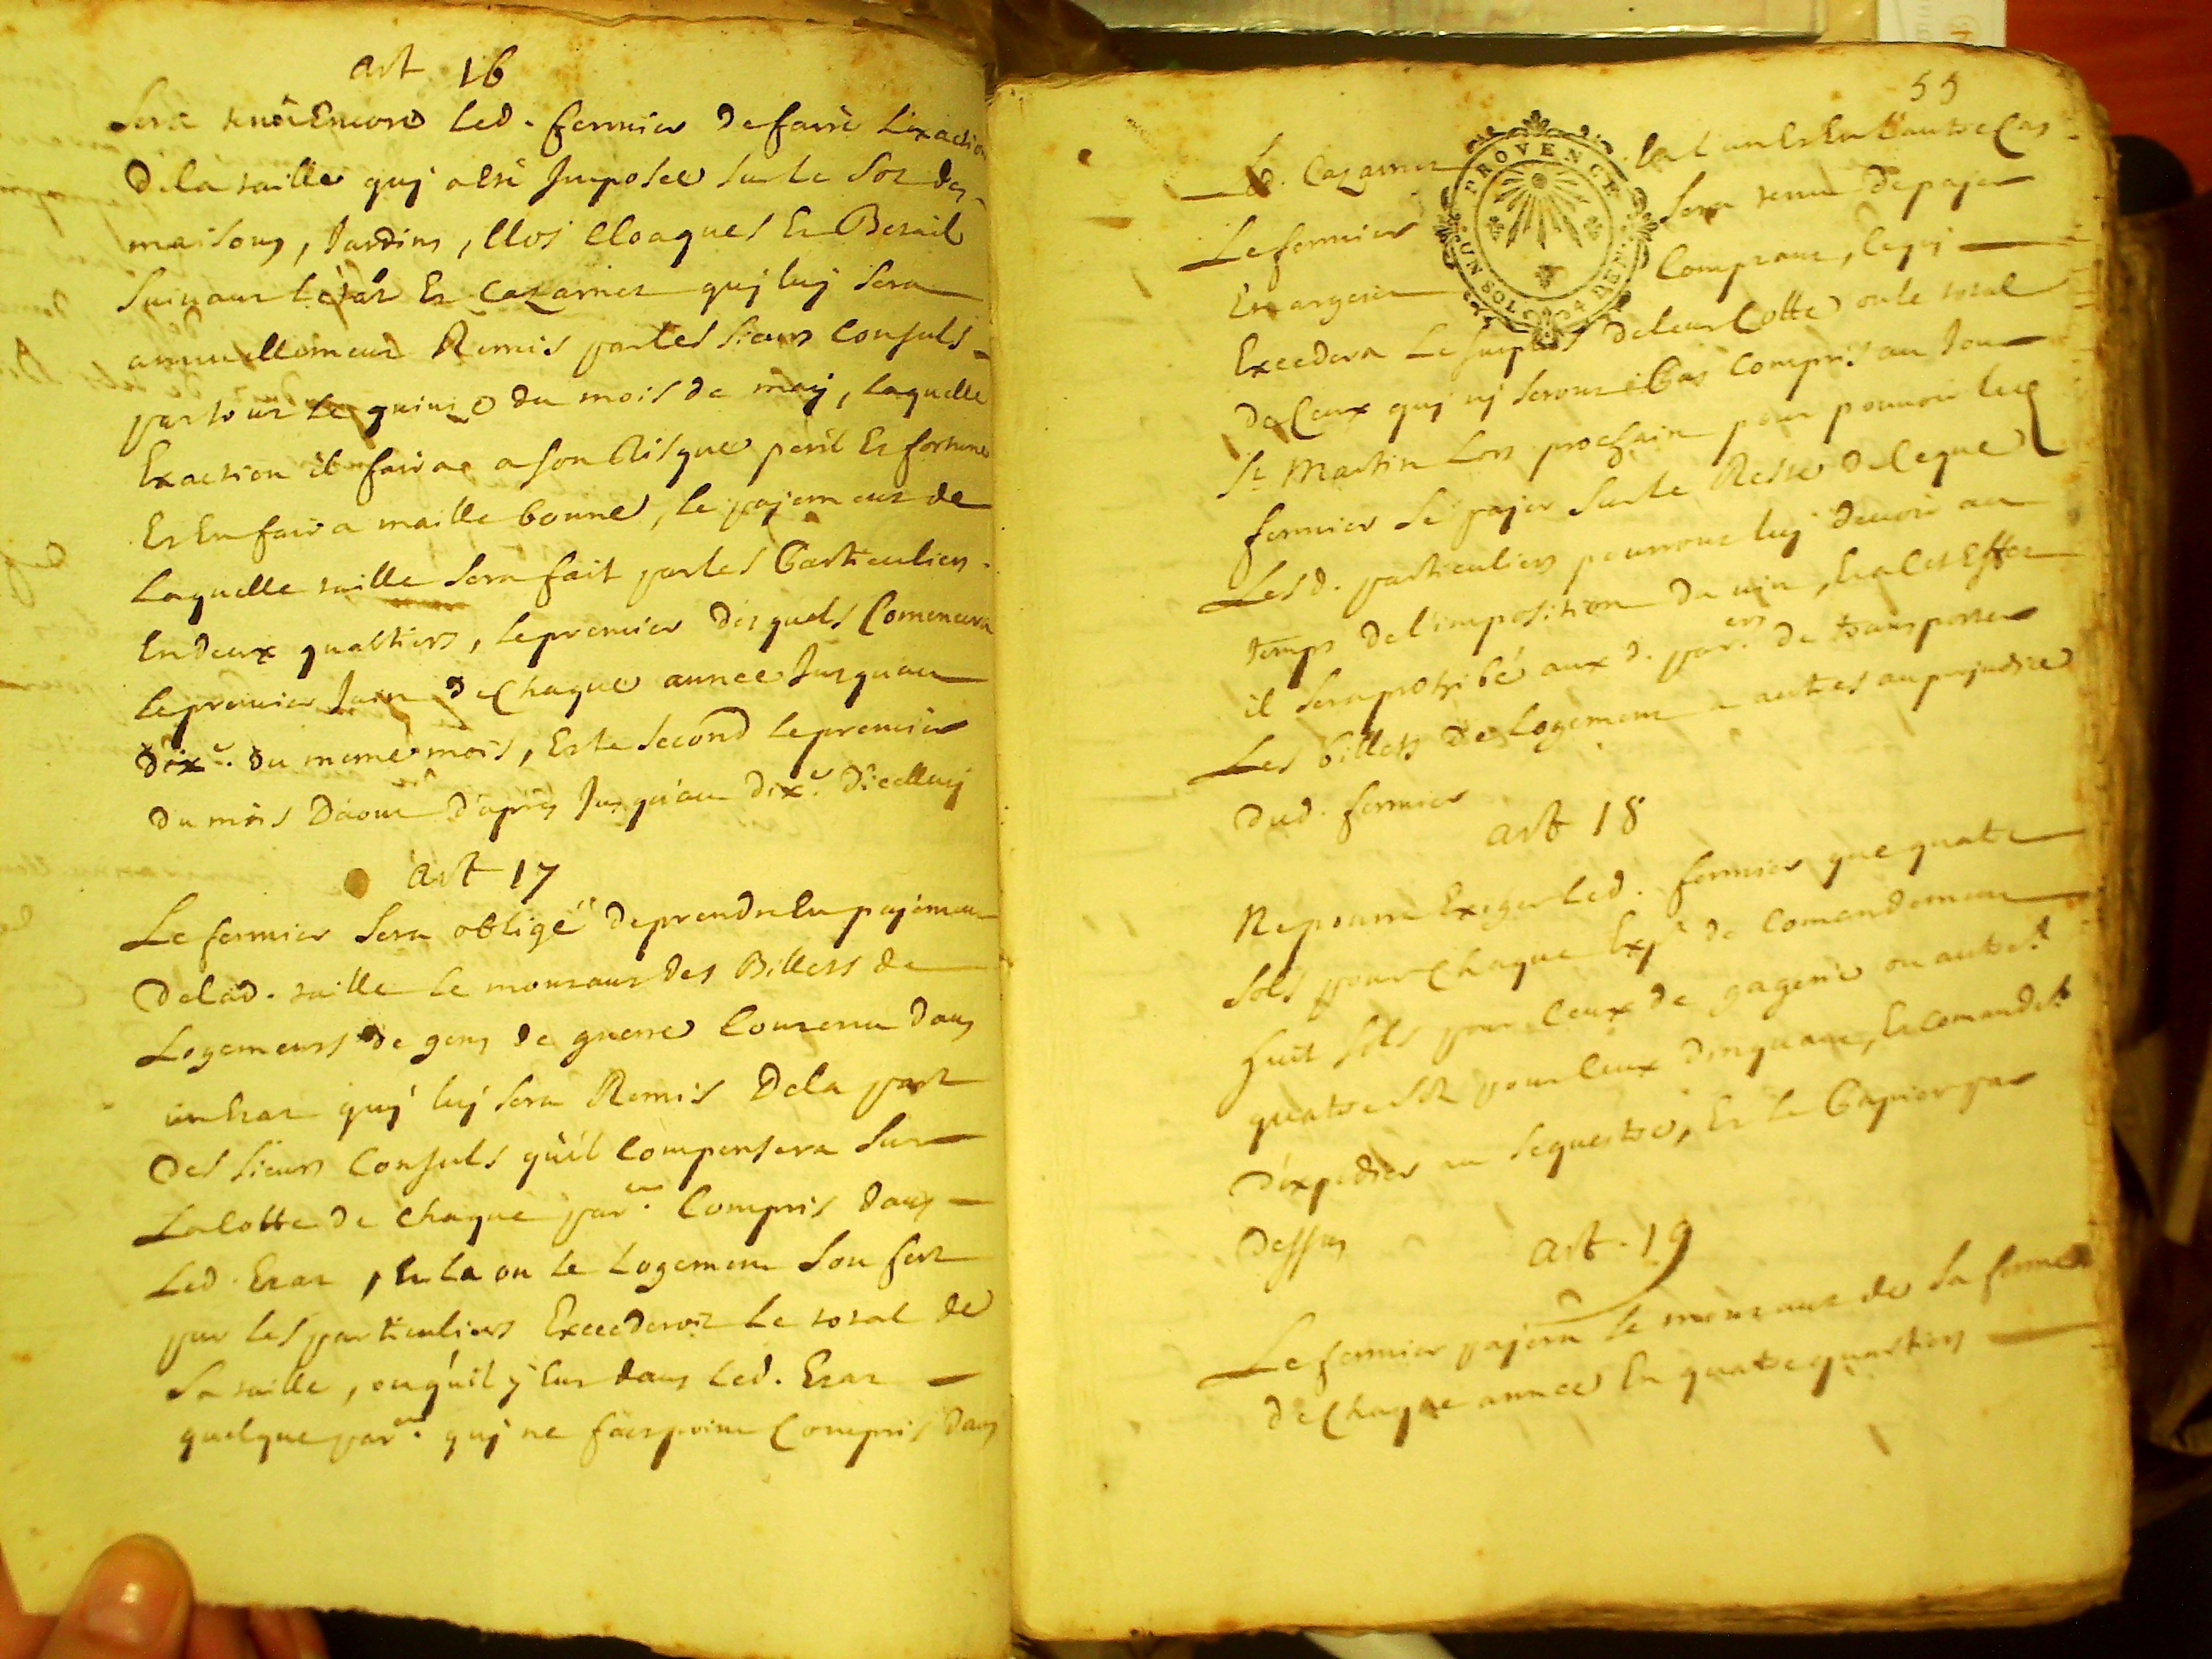 art 16
Sera tenu Encore Led. fermier de faire L'exaction
De la taille quj a esté Imposée sur le Sol des
maisons, Jardins, Clos Cloaques Et Bestail
Suivant Létat Et Cazarnet quj luj Sera
annuellement Remis par les Sieurs Consuls
par tout le quinze du mois de maij, Laquelle
Exaction il faira a son Risque péril Et fortune
Et En faira maille bonne, le pajement de
Laquelle taille Sera fait par les Particuliers
En deux quartiers, le premier desquels Comencera
le premier Juin de Chaque année Jusquau
dixe. du meme mois, Et le Second le premier
du mois D'aout D'après Jusqu'au dixe. D'icelluij
art 17
Le fermier Sera obligé de prendre En pajement
De lad. taille le montant des Billets de
Logements de gens de guerre Contenu dans
un Etat quj luj Sera Remis De la part
Des Sieurs Consuls qu'il Compensera Sur
La Cotte de Chaque parer. Compris dans
Led. Etat, Et la ou le Logement Soufert
par les particuliers Excederoit le total de
Sa taille, ou qu'il y Eut dans Led. Etat
quelque parer. quj ne fut point Compris dans
55
Le. Cazarnet En l'un Et En l'autre Cas
Le fermier Sera tenu de pajer
Comptant, Ce quj
Excedera Le Surplus De leur Cotte ou le total
de Ceux quj nj Seront Pas Compris au Jour
St Martin Lors prochain pour pouvoir led
fermier Se pajer Sur le Reste de Ceque
Lesd. particuliers pourront luj Devoir au
temps de l'imposition du vin, Et a Cet Effet
il Sera prohibé aux d. parers. de transporter
Les billets de Logement a autres au prejudice
Dud. fermier
art 18
Ne pourra Exiger Led. fermier que quatre
Sols pour Chaque Expt de Comandement
huit Sols pour Ceux de gagerie ou autres
quatre pour Ceux Dinquant, Et Comandet
D'expedier au Sequestre, Et le Papier par
Dessus
art. 19
Le fermier pajera le montant de Sa ferme
de Chaque année En quatre quartiers
PROVENCE
UN SOL 4 DEN.